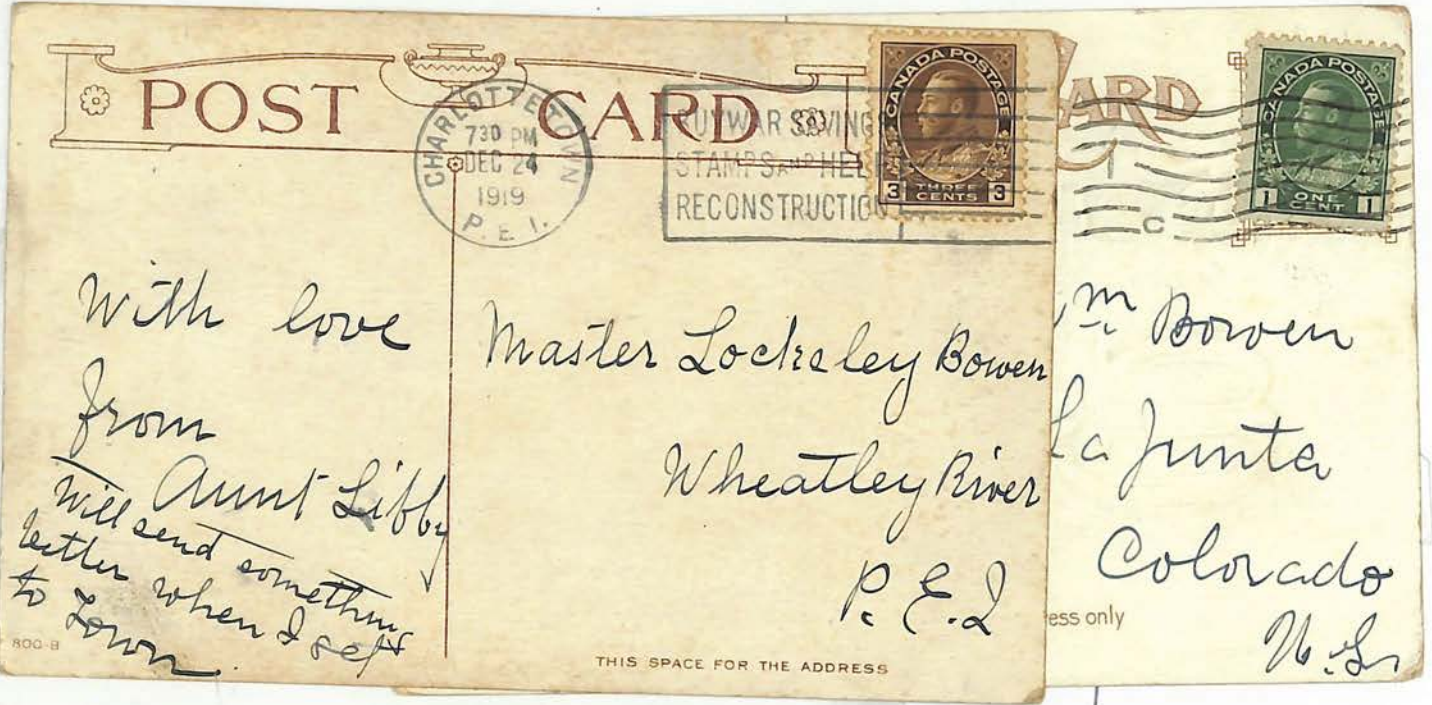 POST CARD
CHARLOTTETOWN
730 PM
DEC 24
1919
P. E. I.
BUY WAR SAVING
STAMPS AND HEL
RECONSTRUCTIO
CANADA POSTAGE
3 THREE CENTS 3
With love
from
Aunt Libby
Will send something
better when I get
to Town
Master Locksley Bowen
Wheatley River
P. E. I
800-B
THIS SPACE FOR THE ADDRESS
CARD
CANADA POSTAGE
1 ONE CENT 1
C
Wm Bowen
La Junta
Colorado
U.S.
ess only